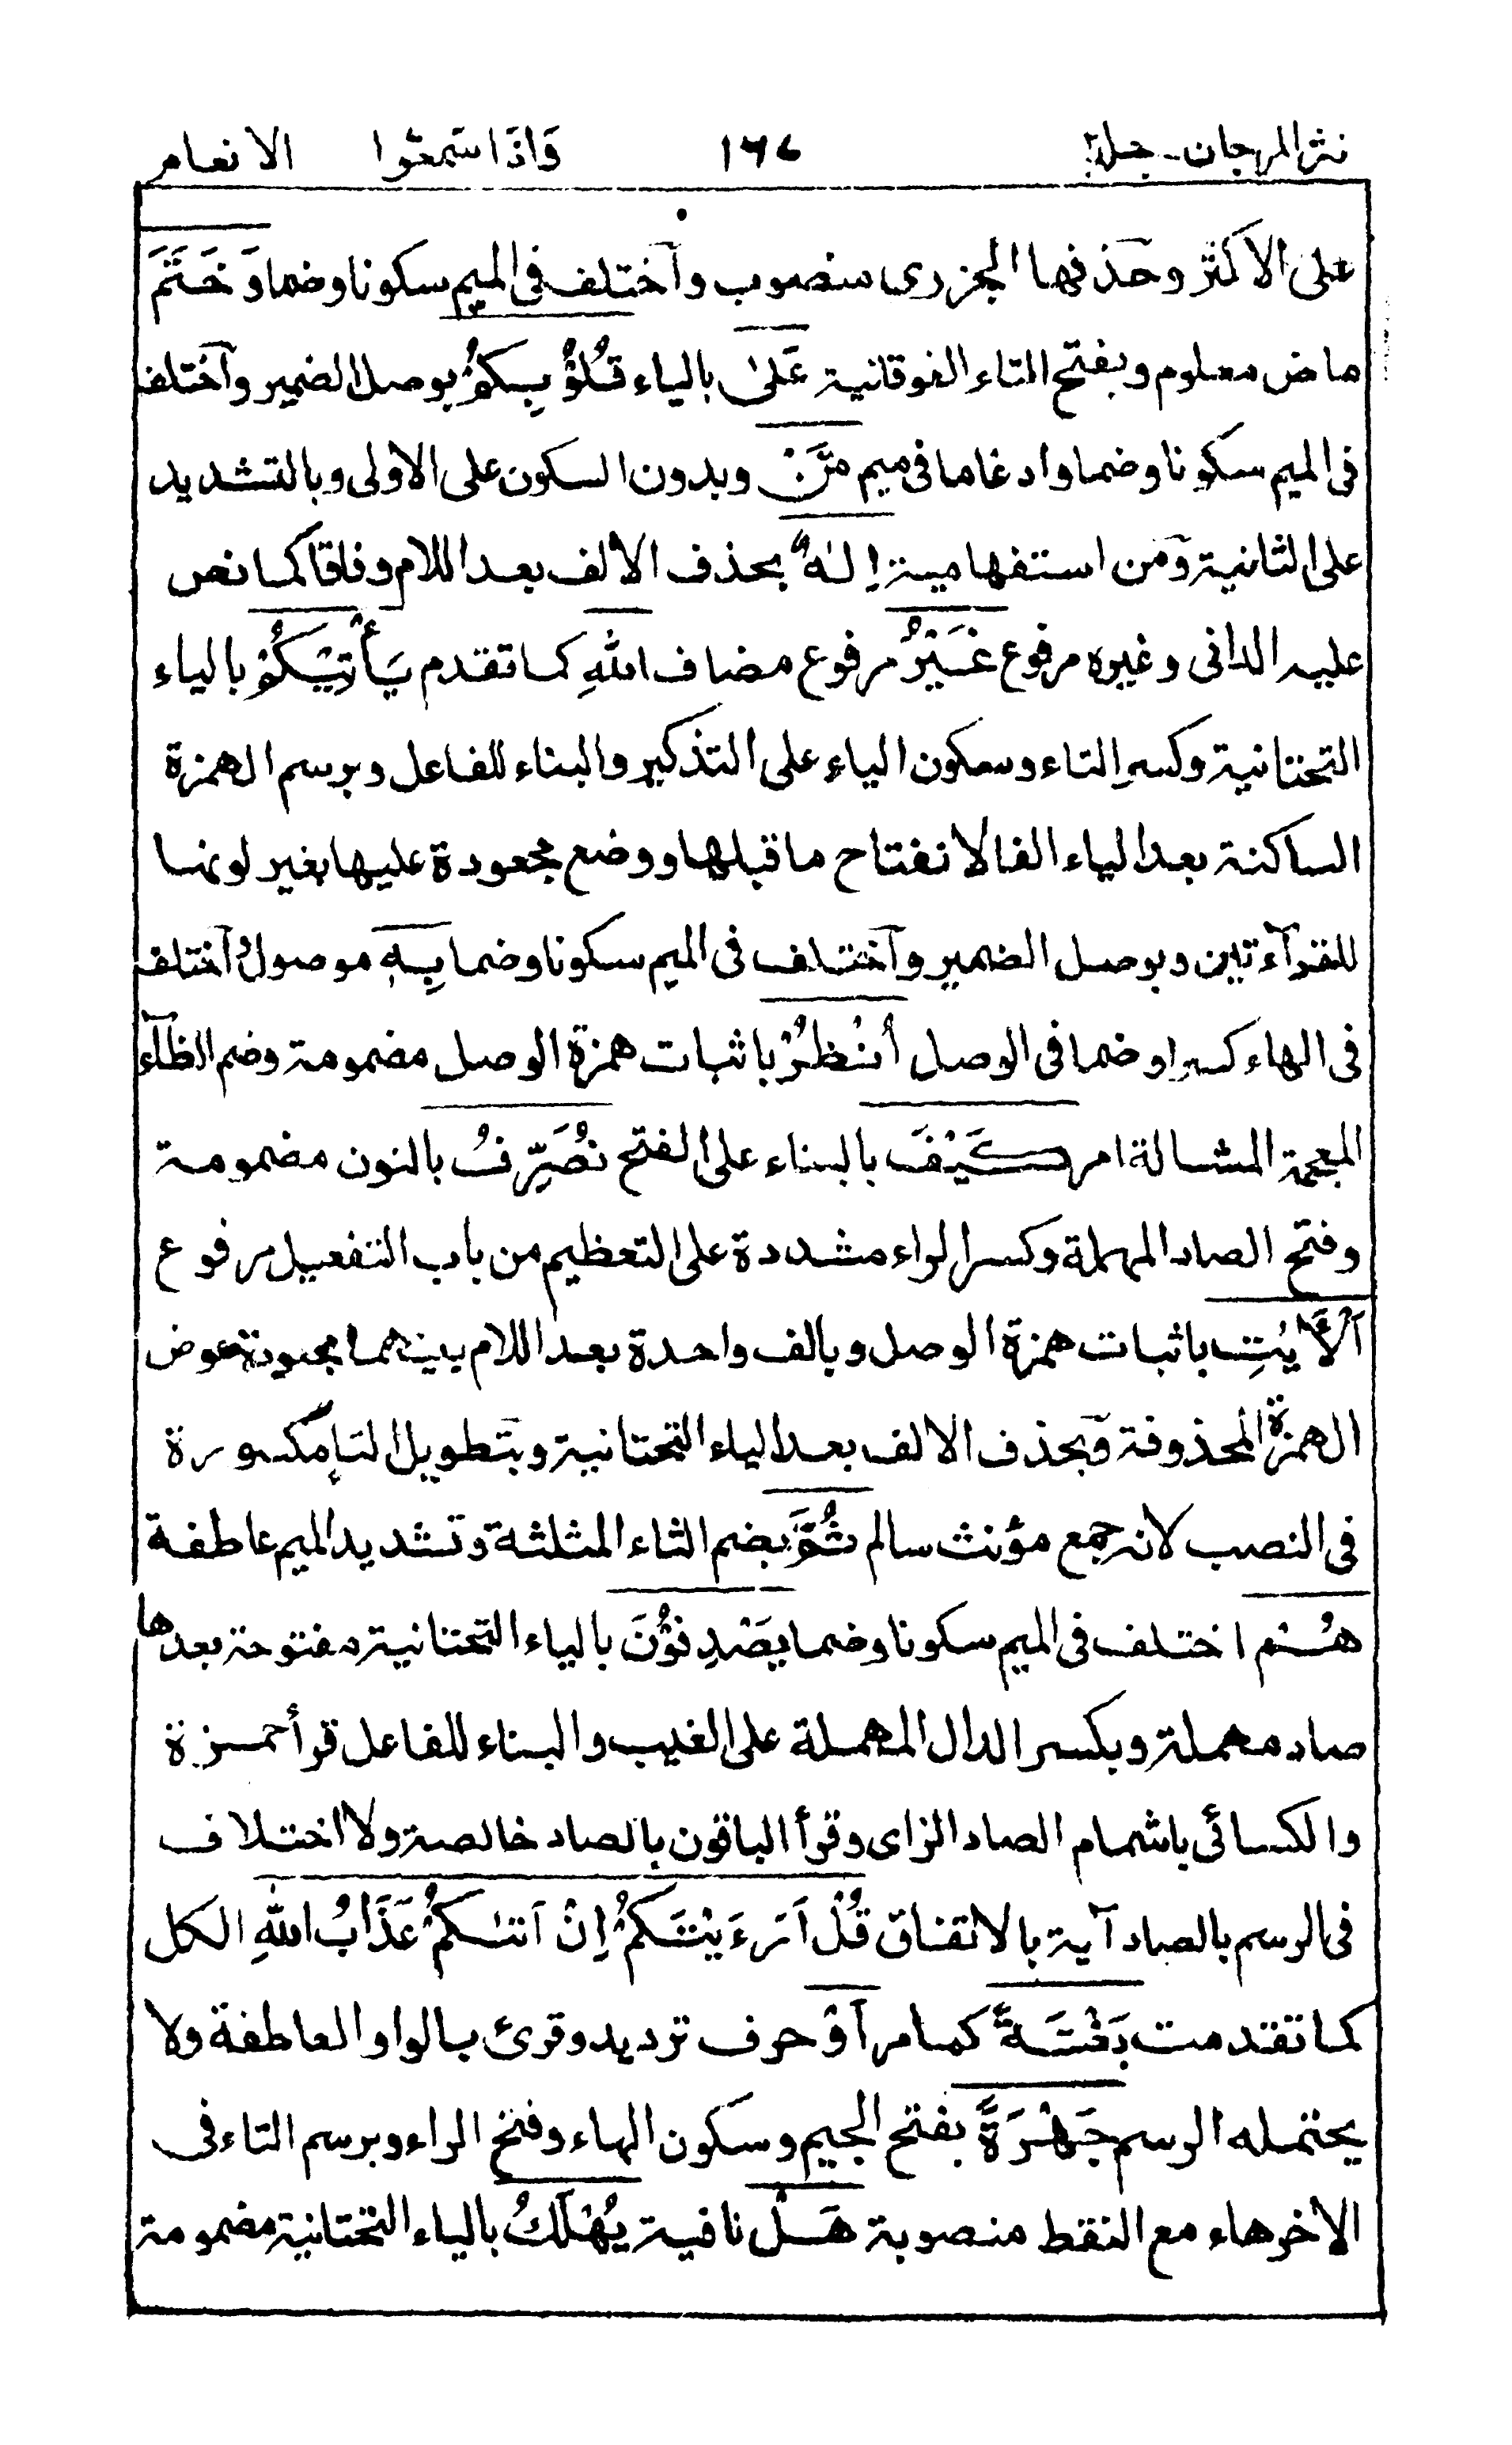 نثر المرجان - جلد٢ ١٦٧ وَاِذَا سَمِعُوْا الانعام
على الاكثر وحذفها الجزرى منصوب وآختلف فى الميم سكونا وضما وَخَتَمَ
ماض معلوم وبفتح التاء الفوقانية عَلىٰ بالياء قُلُوْبِكُمْ بوصل الضمير وآختلف
فى الميم سكونا وضما وادغاما فى ميم مَّنْ وبدون السكون على الاولى وبالتشديد
على الثانية وَمن استفهامية اِلٰهٌ بحذف الالف بعد اللام وفاقا كما نص
عليه الدانى وغيره مرفوع غَيْرُ مرفوع مضاف اللهِ كما تقدم يَأْتِيْكُمْ بالياء
التحتانية وكسر التاء وسكون الياء على التذكير والبناء للفاعل وبرسم الهمزة
الساكنة بعد الياء الفا لانفتاح ما قبلها ووضع مجعودة عليها بغير لونها
للقرآءتين وبوصل الضمير وآختلف فى الميم سكونا وضما بِهٖ موصول وآختلف
فى الهاء كسرا وضما فى الوصل اُنْظُرْ باثبات همزة الوصل مضمومة وضم الظآء
المعجمة المشالة امر كَيْفَ بالبناء على الفتح نُصَرِّفُ بالنون مضمومة
وفتح الصاد المهملة وكسر الراء مشددة على التعظيم من باب التفعيل مرفوع
اَلْأٰيٰتِ باثبات همزة الوصل وبالف واحدة بعد اللام بينهما مجعودة عوض
الهمزة المحذوفة وَبحذف الالف بعد الياء التحتانية وبتطويل التاء مكسورة
فى النصب لانه جمع مؤنث سالم ثُمَّ بضم الثاء المثلثة وتشديد الميم عاطفة
هُمْ اختلف فى الميم سكونا وضما يَصْدِفُوْنَ بالياء التحتانية مفتوحة بعدها
صاد مهملة وبكسر الدال المهملة على الغيب والبناء للفاعل قرأ حمزة
والكسائى باشمام الصاد الزاى وقرأ الباقون بالصاد خالصة ولا اختلاف
فى الرسم بالصاد آية بالاتفاق قُلْ اَرَءَيْتَكُمْ اِنْ اَتٰىكُمْ عَذَابُ اللهِ الكل
كما تقدمت بَغْتَةً كما مر اَوْ حرف ترديد وقرئ بالواو العاطفة ولا
يحتمله الرسم جَهْرَةً بفتح الجيم وسكون الهاء وفتح الراء وبرسم التاء فى
الأخر هاء مع النقط منصوبة هَلْ نافية يُهْلَكُ بالياء التحتانية مضمومة